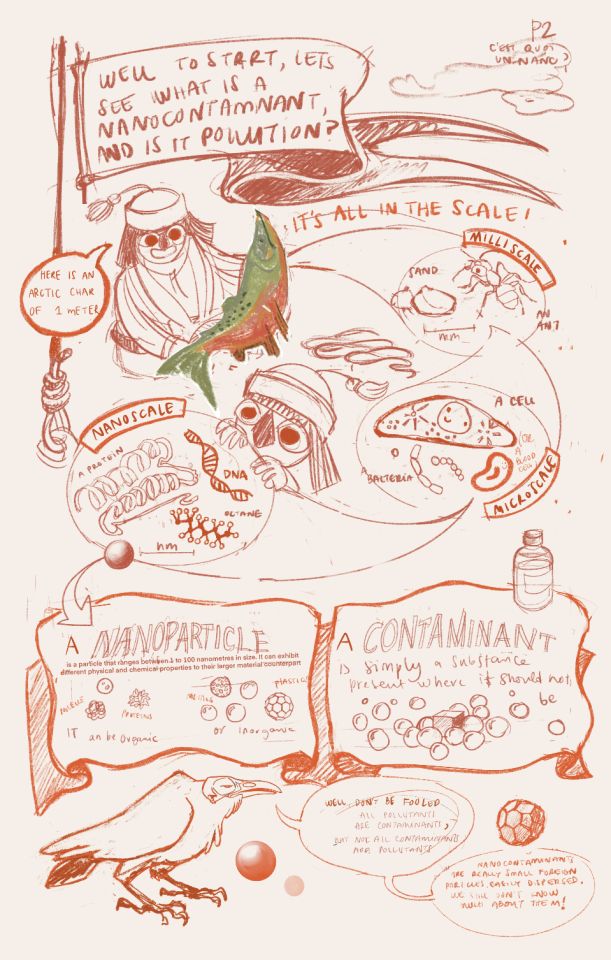 P2
C'EST QUOI
UN NANO?
WELL TO START, LETS
SEE WHAT IS A
NANOCONTAMNANT,
AND IS IT POLLUTION?
IT'S ALL IN THE SCALE!
HERE IS AN
ARCTIC CHAR
OF 1 METER
MILLISCALE
SAND
AN
ANT
mm
NANOSCALE
A PROTEIN
DNA
OCTANE
nm
A CELL
A
BACTERIA
A
BLOOD
CELL
MICROSCALE
A NANOPARTICLE
is a particle that ranges between 1 to 100 nanometres in size. It can exhibit
different physical and chemical properties to their larger material counterpart
PROTEINS
METALS
PLASTIC
IT an be Organic
or Inorganic
A CONTAMINANT
is simply a substance
present where it should not
be
WELL, DON'T BE FOOLED
ALL POLLUTANTS
ARE CONTAMINANTS,
BUT NOT ALL CONTAMINANTS
ARE POLLUTANTS
NANOCONTAMINANTS
ARE REALLY SMALL FOREIGN
PARTICLES, EASILY DISPERSED.
WE STILL DON'T KNOW
MUCH ABOUT THEM!